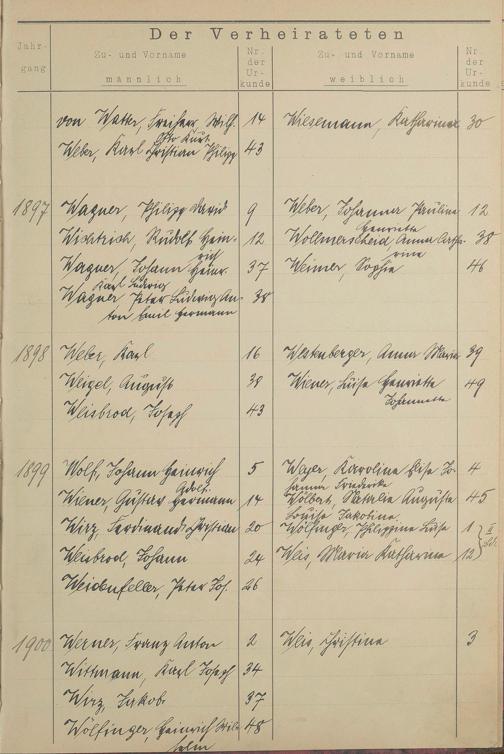 Der Verheirateten
Jahr-
gang
Zu- und Vorname
männlich
Nr.
der
Ur-
kunde
Zu- und Vorname
weiblich
Nr.
der
Ur-
kunde
von Watter, Freiherr, Wilh. 14 Wiesemann, Katharina 30
Otto Kurt
Weber, Karl Christian Philipp 43
1897 Wagner, Philipp David 9 Weber, Johanna Pauline 12
Henriette
Rudolf Hein- 12 Wollmerscheid, Anna Catha- 38
rich rine
Wagner, Johann Heinr. 37 Weimer, Sophie 46
Karl Ludwig
Wagner Peter Ludwig An- 38
ton Emil Hermann
1898 Weber, Karl 16 Anna Maria 39
Weigel, August 38 Wiener, Luise Henriette 49
Johannette
Weisbrod, Joseph 43
1899 Wolf, Johann Heinrich 5 Weyer, Karoline Elise Jo- 4
Adolf hanna Friederike
Wiener, Gustav Hermann 14 Wölbert, Natalie Auguste 45
Louise Jakobine
Wirz, Ferdinand Christian 20 Wölfinger, Philippine Luise 1
Weisbrod, Johann 24 Weis, Maria Katharina 12
Weidenfeller, Peter Jos. 26
1900 Werner, Franz Anton 2 Weis, Christina 3
Wittmann, Karl Joseph 34
Wirz, Jakob 37
Wölfinger, Heinrich Wil- 48
helm